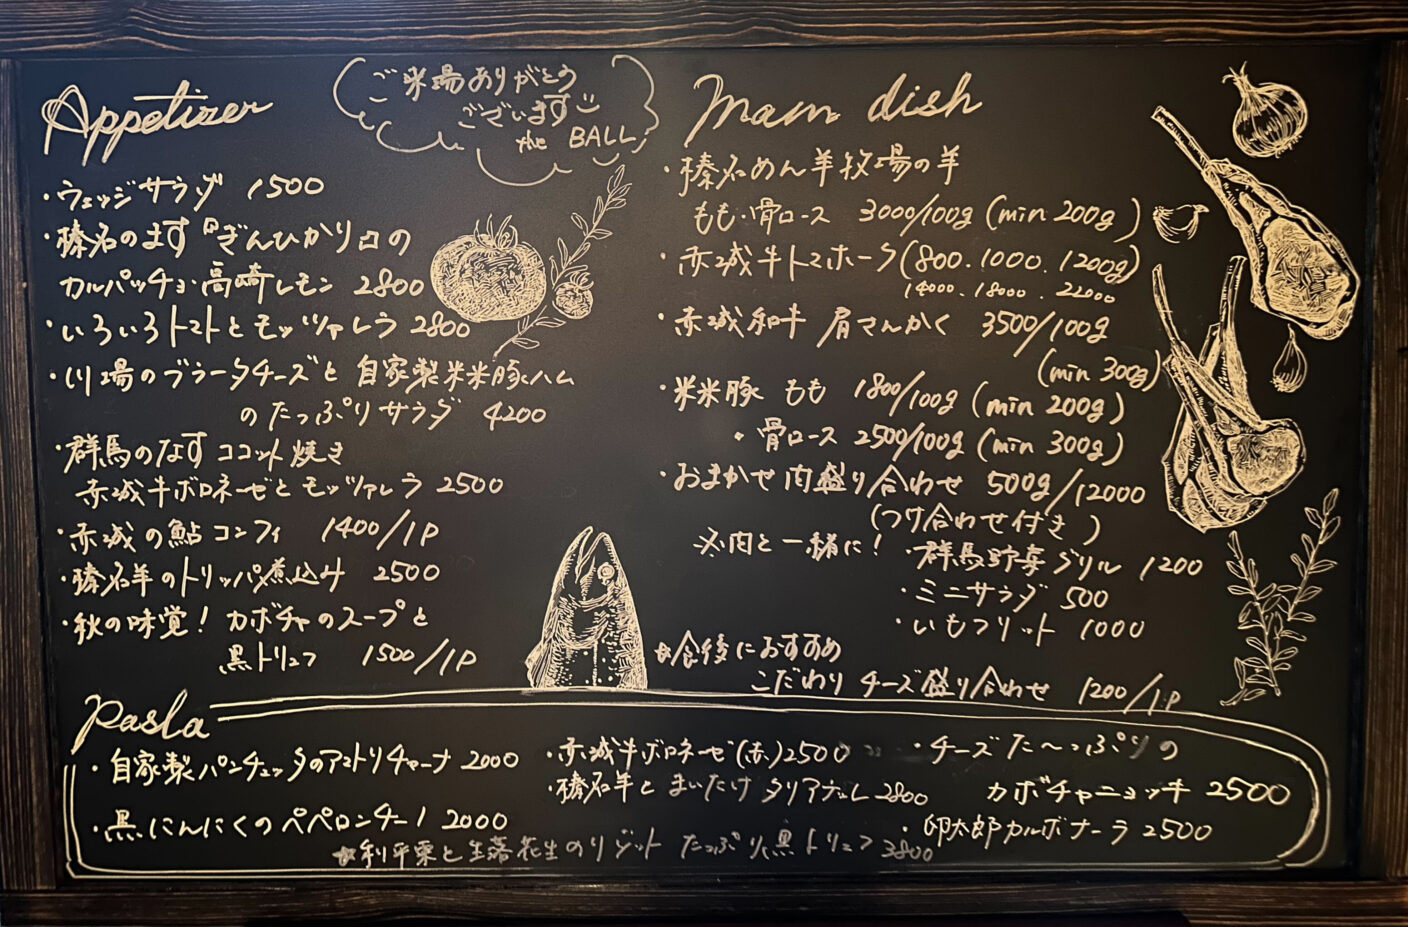 Appetizer
ご来場ありがとう
ございます
the BALL
・ウェッジサラダ 1500
・榛名のます『ぎんひかり』の
カルパッチョ・高崎レモン 2800
・いろいろトマトとモッツァレラ 2800
・川場のブラータチーズと自家製米米豚ハム
のたっぷりサラダ 4200
・群馬のなすココット焼き
赤城牛ボロネーゼとモッツァレラ 2500
・赤城の鮎コンフィ 1400/1P
・榛名羊のトリッパ煮込み 2500
・秋の味覚！カボチャのスープと
黒トリュフ 1500/1P
Main dish
・榛名めん羊牧場の羊
もも・骨ロース 3000/100g (min 200g)
・赤城牛トマホーク(800.1000.1200g)
14000.18000.22000
・赤城和牛 肩さんかく 3500/100g
(min 300g)
・米米豚 もも 1800/100g (min 200g)
・骨ロース 2500/100g (min 300g)
・おまかせ肉盛り合わせ 500g/12000
(つけ合わせ付き)
※肉と一緒に！・群馬野菜グリル 1200
・ミニサラダ 500
・いもフリット 1000
☆食後におすすめ
こだわりチーズ盛り合わせ 1200/1P
Pasta
・自家製パンチェッタのアマトリチャーナ 2000
・黒にんにくのペペロンチーノ 2000
・赤城牛ボロネーゼ(赤)2500
・榛名羊とまいたけタリアテッレ 2800
・チーズた〜っぷりの
カボチャニョッキ 2500
・卵太郎カルボナーラ 2500
☆利平栗と生落花生のリゾット たっぷり黒トリュフ 3800